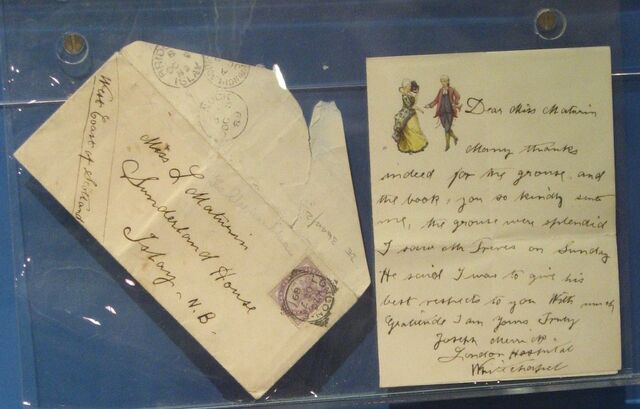 West
Coast of Scotland
Miss L Maturin
Sunderland House
Islay - N.B.
LONDON
89
Dear Miss Maturin
Many thanks
indeed for the grouse and
the book, you so kindly sent
me, the grouse were splendid
I saw Mr Treves on Sunday
He said I was to give his
best respects to you With much
Gratitude I am Yours Truly
Joseph Merrick
London Hospital
Whitechapel